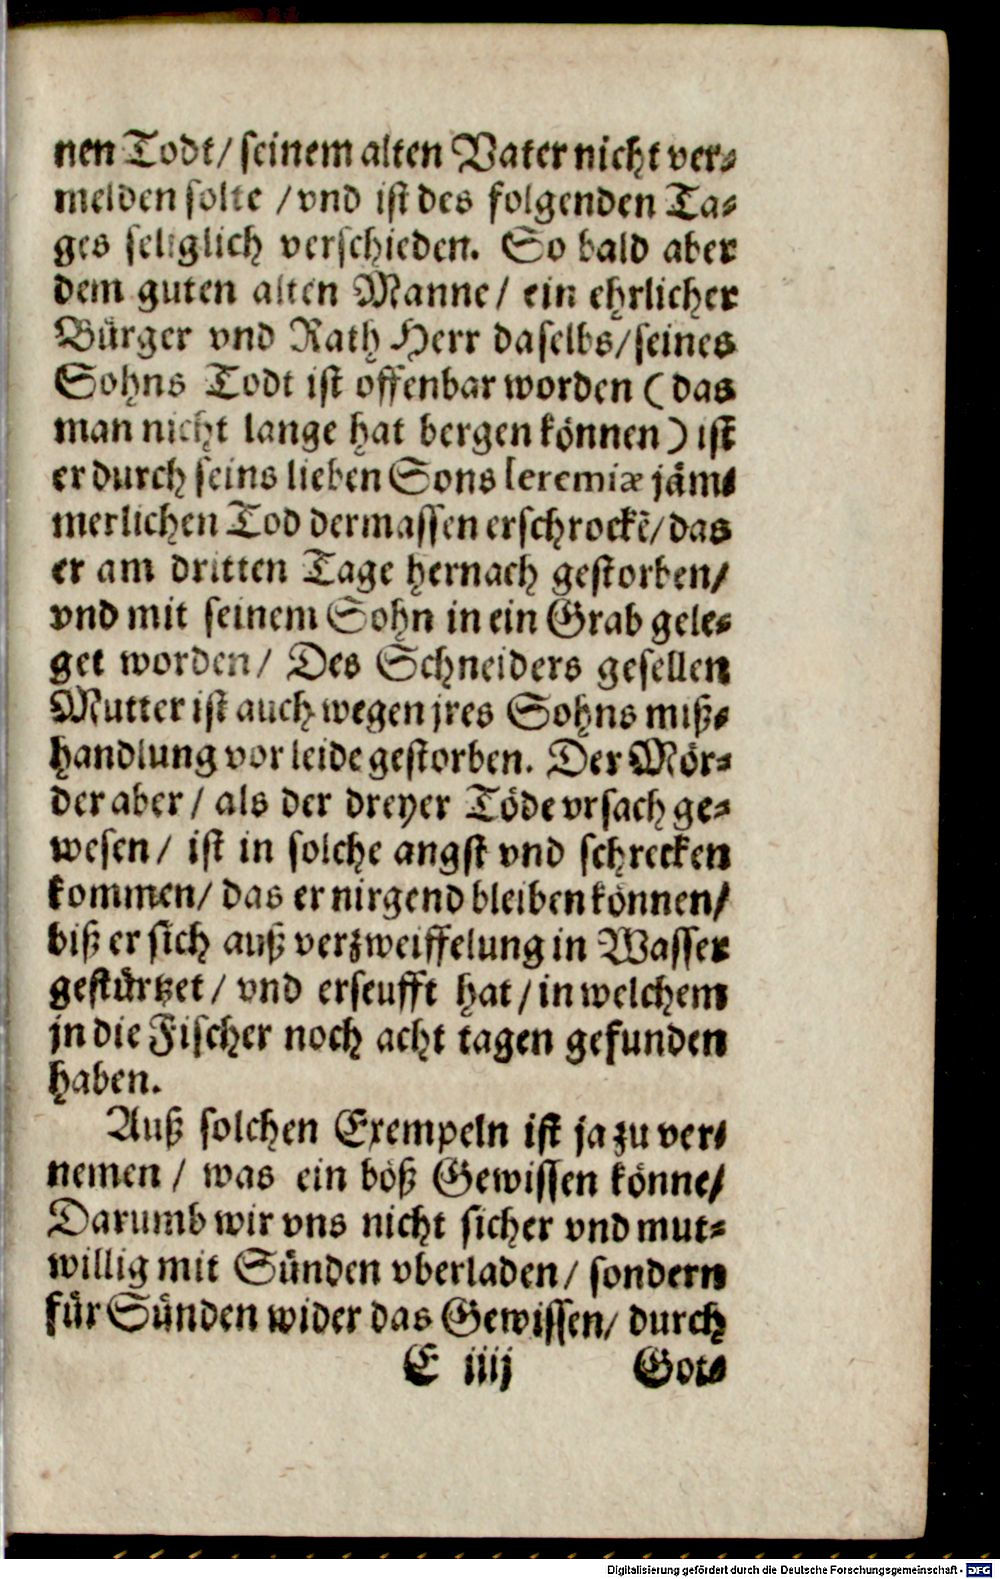 nen Todt/ seinem alten Vater nicht ver⸗
melden solte / vnd ist des folgenden Ta⸗
ges seliglich verschieden. So bald aber
dem guten alten Manne/ ein ehrlicher
Bürger vnd Rath Herr daselbs/ seines
Sohns Todt ist offenbar worden ( das
man nicht lange hat bergen können ) ist
er durch seins lieben Sons Ieremiæ jäm⸗
merlichen Tod dermassen erschrockẽ/ das
er am dritten Tage hernach gestorben/
vnd mit seinem Sohn in ein Grab gele⸗
get worden/ Des Schneiders gesellen
Mutter ist auch wegen jres Sohns miß⸗
handlung vor leide gestorben. Der Mör⸗
der aber / als der dreyer Töde vrsach ge⸗
wesen / ist in solche angst vnd schrecken
kommen/ das er nirgend bleiben können/
biß er sich auß verzweiffelung in Wasser
gestürtzet / vnd erseufft hat / in welchem
jn die Fischer noch acht tagen gefunden
haben.
Auß solchen Exempeln ist ja zu ver⸗
nemen / was ein böß Gewissen könne/
Darumb wir vns nicht sicher vnd mut⸗
willig mit Sünden vberladen / sondern
für Sünden wider das Gewissen/ durch
E iiij Got⸗
Digitalisierung gefördert durch die Deutsche Forschungsgemeinschaft - DFG